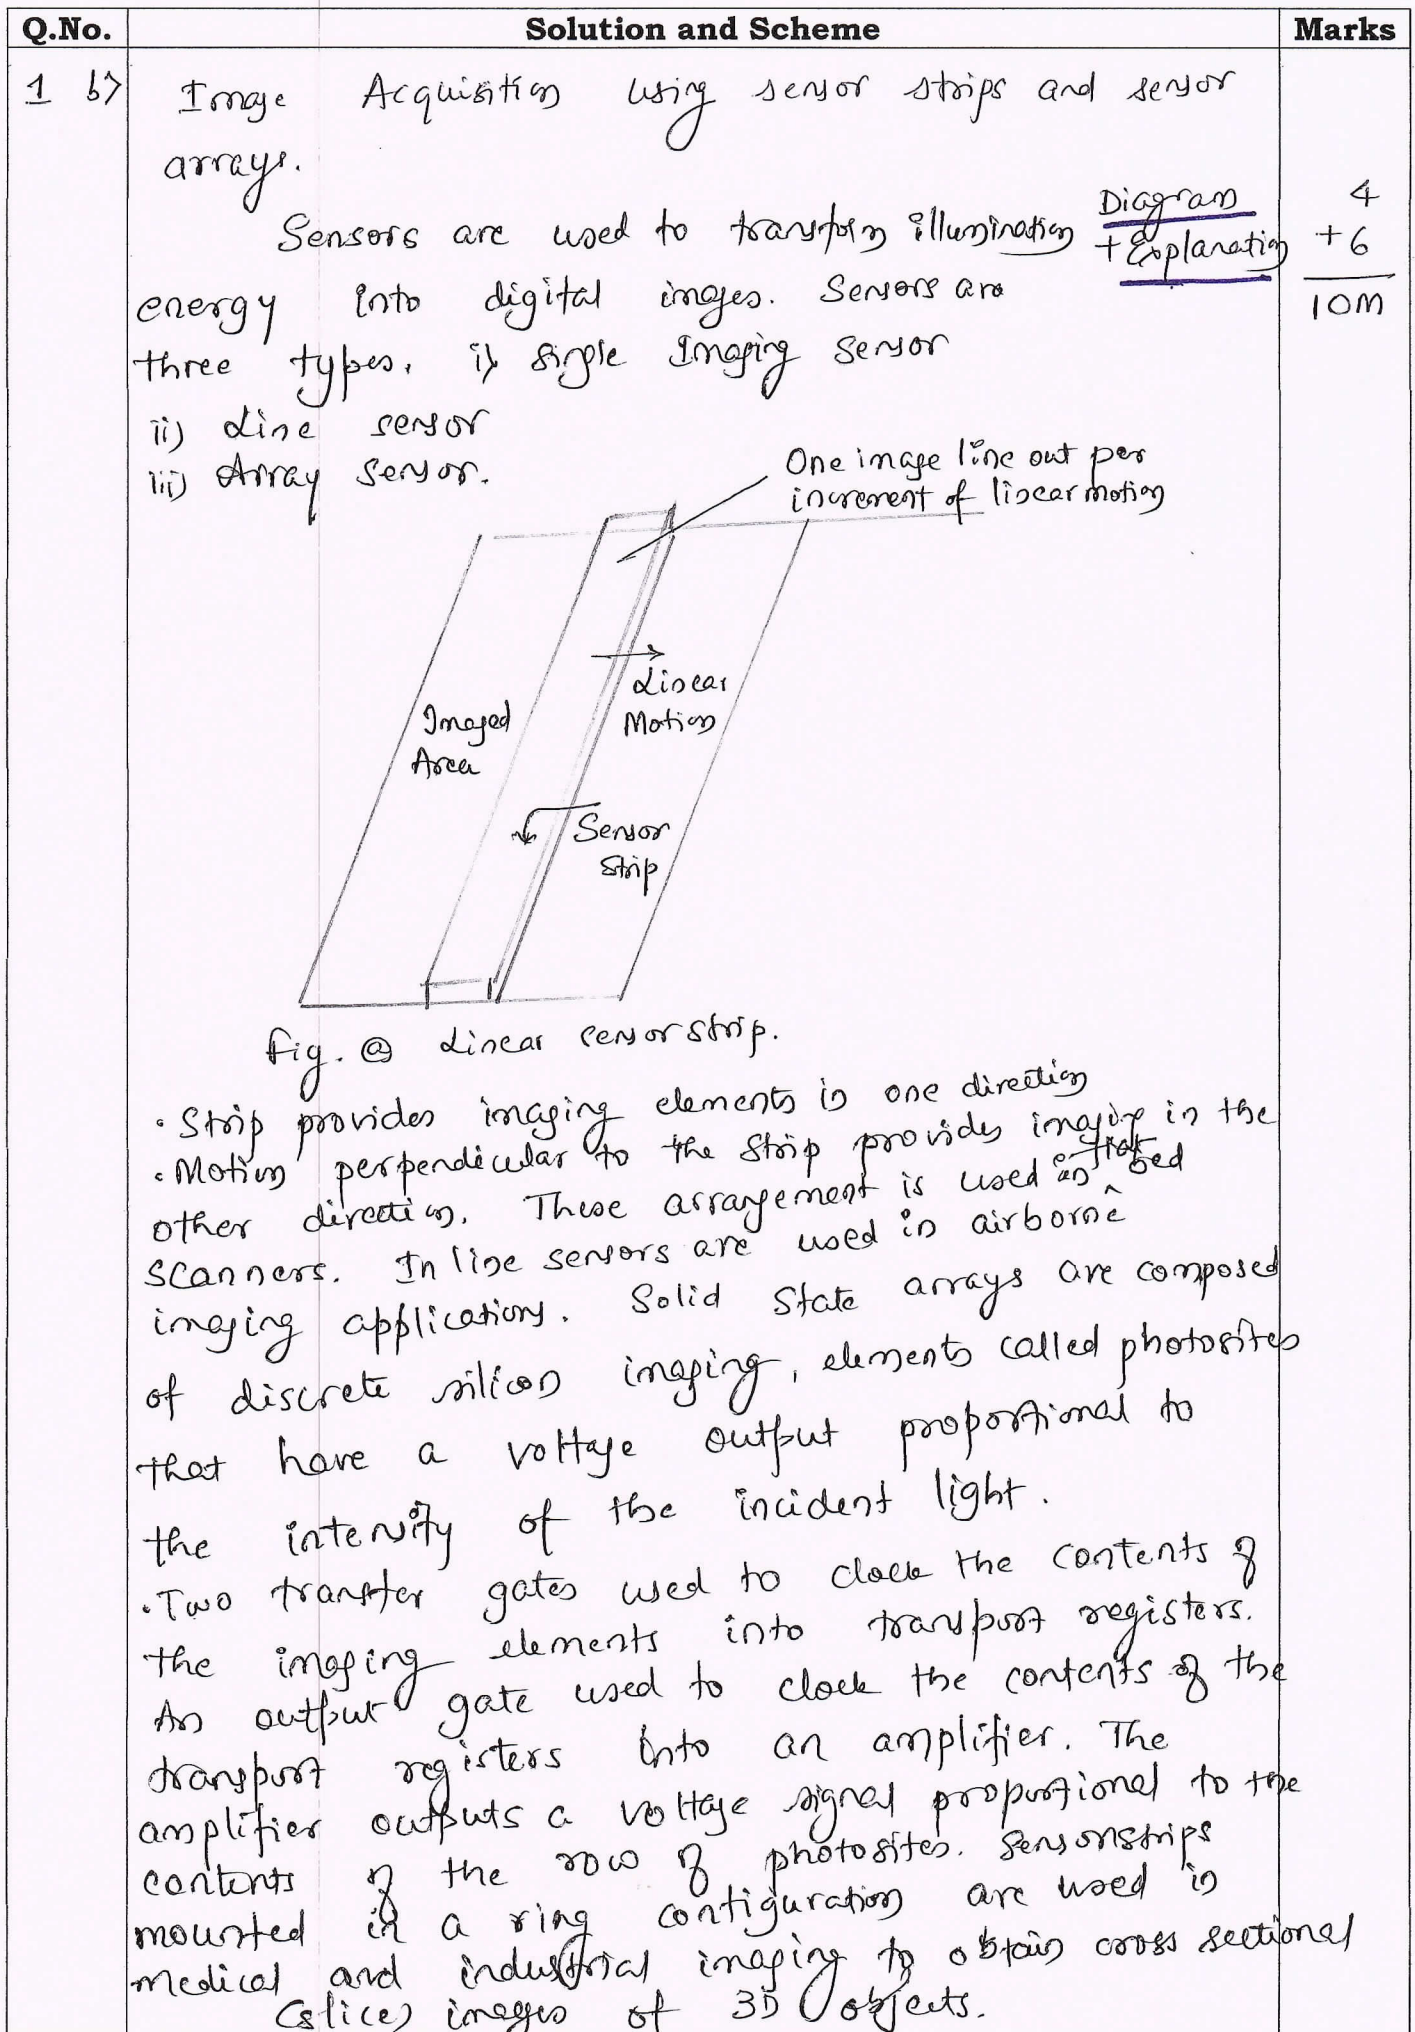 Q.No. Solution and Scheme Marks
1 b> Image Acquisition using sensor strips and sensor
arrays.
Sensors are used to transform illumination Diagram 4
+ Explanation +6
energy into digital images. Sensors are 10M
three types. i) Single Imaging Sensor
ii) Line sensor
iii) Array Sensor.
One image line out per
increment of linear motion
Linear
Motion
Imaged
Area
Sensor
Strip
Fig. (a) Linear sensor strip.
• Strip provides imaging elements in one direction
• Motion perpendicular to the Strip provides imaging in the
other direction. These arrangement is used in flat bed
scanners. In line sensors are used in airborne
imaging applications. Solid State arrays are composed
of discrete silicon imaging, elements called photosites
that have a voltage output proportional to
the intensity of the incident light.
• Two transfer gates used to clock the contents of
the imaging elements into transport registers.
An output gate used to clock the contents of the
transport registers into an amplifier. The
amplifier outputs a voltage signal proportional to the
contents of the row of photosites. Sensor strips
mounted in a ring configuration are used in
medical and industrial imaging to obtain cross sectional
(slice) images of 3D objects.